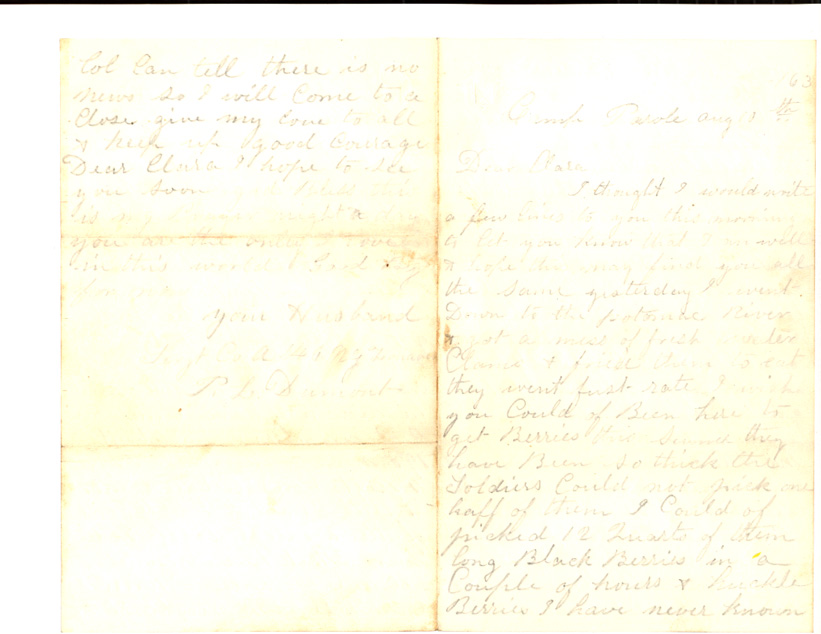 63
Camp Parole Aug 8th
Dear Clara
I thought I would write
a few lines to you this morning
& let you know that I am well
& hope this may find you all
the same yesterday I went
Down to the potomac River
& got a mess of fresh water
Clams & fried them to eat
they went fust rate I wish
you Could of Been here to
get Berries this they
have Been so thick the
Soldiers Could not pick one
haff of them I Could of
picked 12 Quarts of them
long Black Berries in a
Couple of hours & huckle
Berries I have never known
Col Can tell there is no
news so I will Come to a
Close give my love to all
& keep up good Courage
Dear Clara I hope to see
you soon
is my night & day
you are the only I love
in this world Good By
your Husband
Co A 141 NY
Dumont